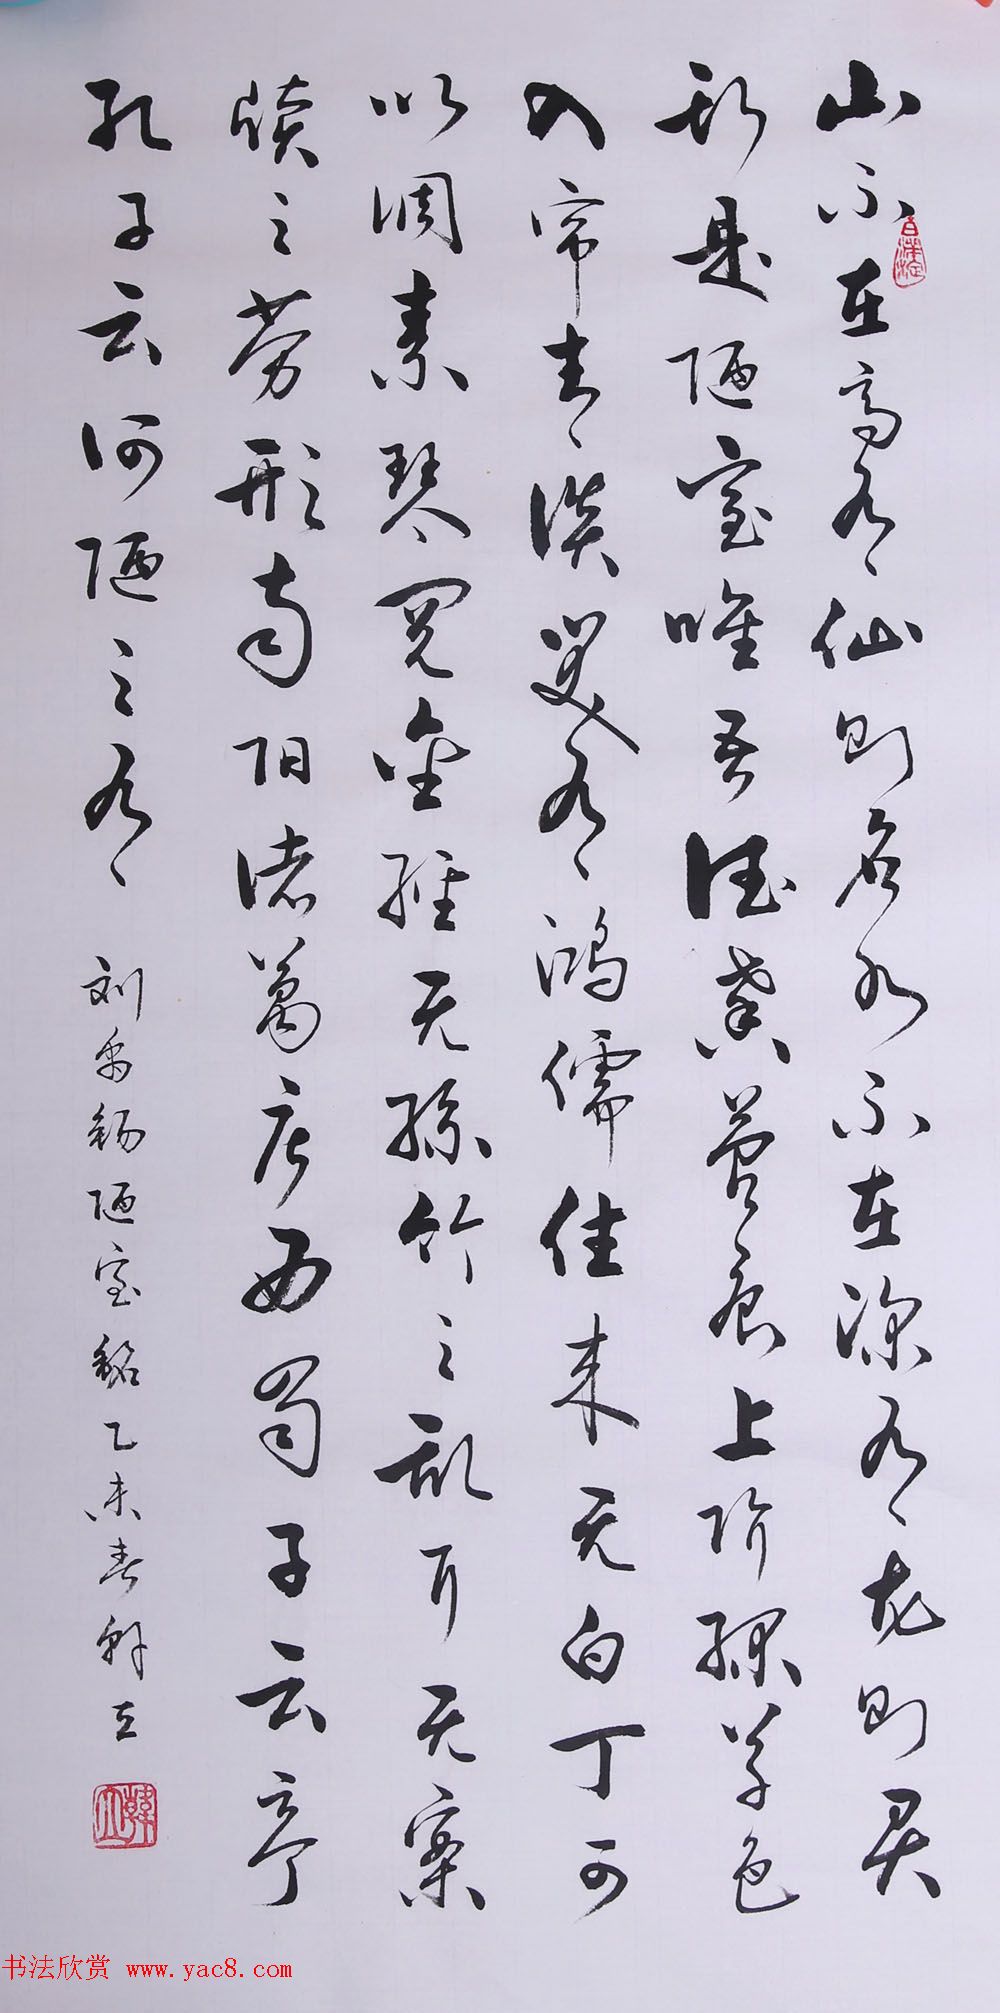 山不在高有仙则名水不在深有龙则灵
斯是陋室唯吾德馨苔痕上阶绿草色
入帘青谈笑有鸿儒往来无白丁可
以调素琴阅金经无丝竹之乱耳无案
牍之劳形南阳诸葛庐西蜀子云亭
孔子云何陋之有 刘禹锡陋室铭乙未春韩立
书法欣赏 www.yac8.com